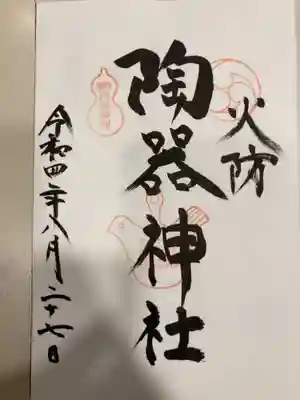 火防
陶器神社
令和四年八月二十七日